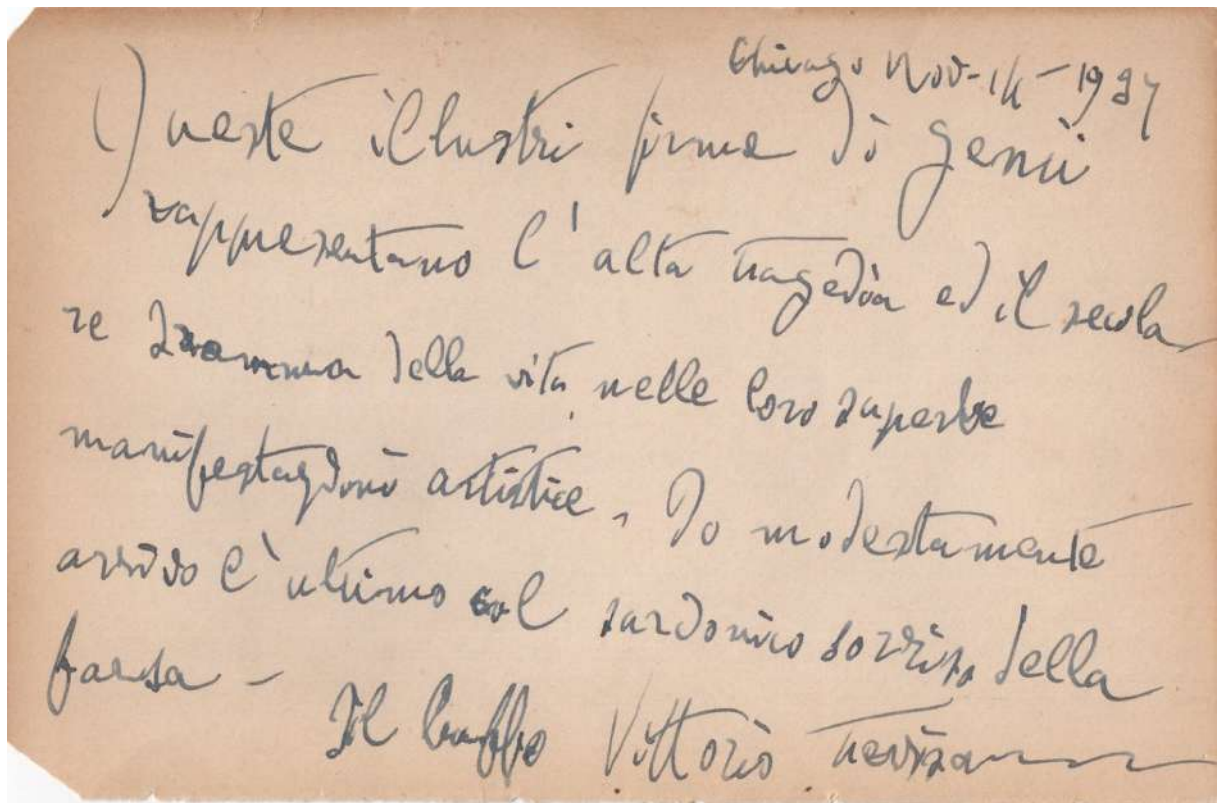 Chicago Nov-14-1937
Queste illustri firme di genii
rappresentano l'alta tragedia ed il secola
re dramma della vita nelle loro superbe
manifestazioni artistice. Io modestamente
arrivo l'ultimo col sardonico sorriso della
farsa -
Il buffo Vittorio Trevisan